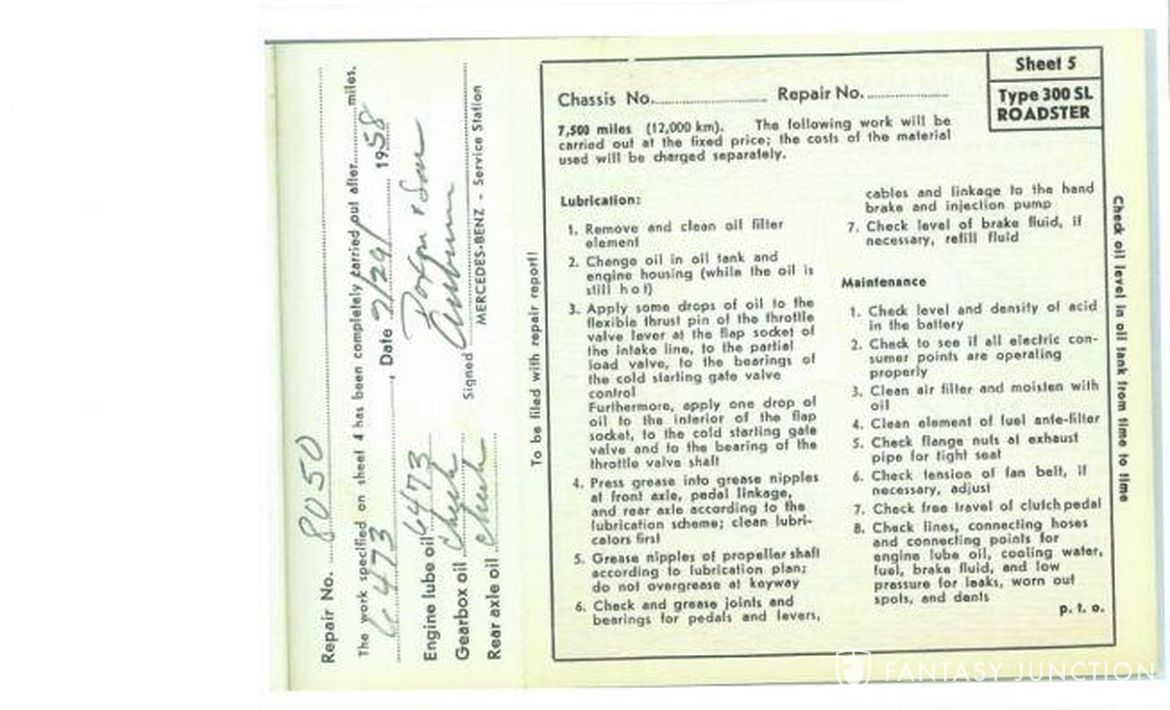 Repair No. 8050
The work specified on sheet 4 has been completely carried out after miles.
6473, Date 9/29/ 1958
Engine lube oil 6473
Gearbox oil Check
Rear axle oil Check
Signed
MERCEDES-BENZ - Service Station
To be filed with repair report!
Sheet 5
Type 300 SL
ROADSTER
Chassis No. Repair No.
7,500 miles (12,000 km). The following work will be
carried out at the fixed price; the costs of the material
used will be charged separately.
Lubrication:
1. Remove and clean oil filter
element
2. Change oil in oil tank and
engine housing (while the oil is
still hot)
3. Apply some drops of oil to the
flexible thrust pin of the throttle
valve lever at the flap socket of
the intake line, to the partial
load valve, to the bearings of
the cold starting gate valve
control
Furthermore, apply one drop of
oil to the interior of the flap
socket, to the cold starting gate
valve and to the bearing of the
throttle valve shaft
4. Press grease into grease nipples
at front axle, pedal linkage,
and rear axle according to the
lubrication scheme; clean lubri-
cators first
5. Grease nipples of propeller shaft
according to lubrication plan;
do not overgrease at keyway
6. Check and grease joints and
bearings for pedals and levers,
cables and linkage to the hand
brake and injection pump
7. Check level of brake fluid, if
necessary, refill fluid
Maintenance
1. Check level and density of acid
in the battery
2. Check to see if all electric con-
sumer points are operating
properly
3. Clean air filter and moisten with
oil
4. Clean element of fuel ante-filter
5. Check flange nuts at exhaust
pipe for tight seat
6. Check tension of fan belt, if
necessary, adjust
7. Check free travel of clutch pedal
8. Check lines, connecting hoses
and connecting points for
engine lube oil, cooling water,
fuel, brake fluid, and low
pressure for leaks, worn out
spots, and dents
p. t. o.
Check oil level in oil tank from time to time
FANTASY JUNCTION